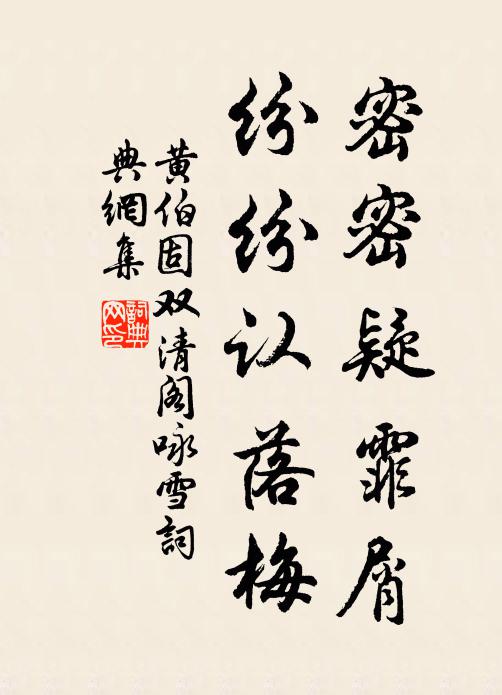 密密疑霏屑
纷纷认落梅
黄伯固双清阁咏雪詞
典網集
詞典
网印